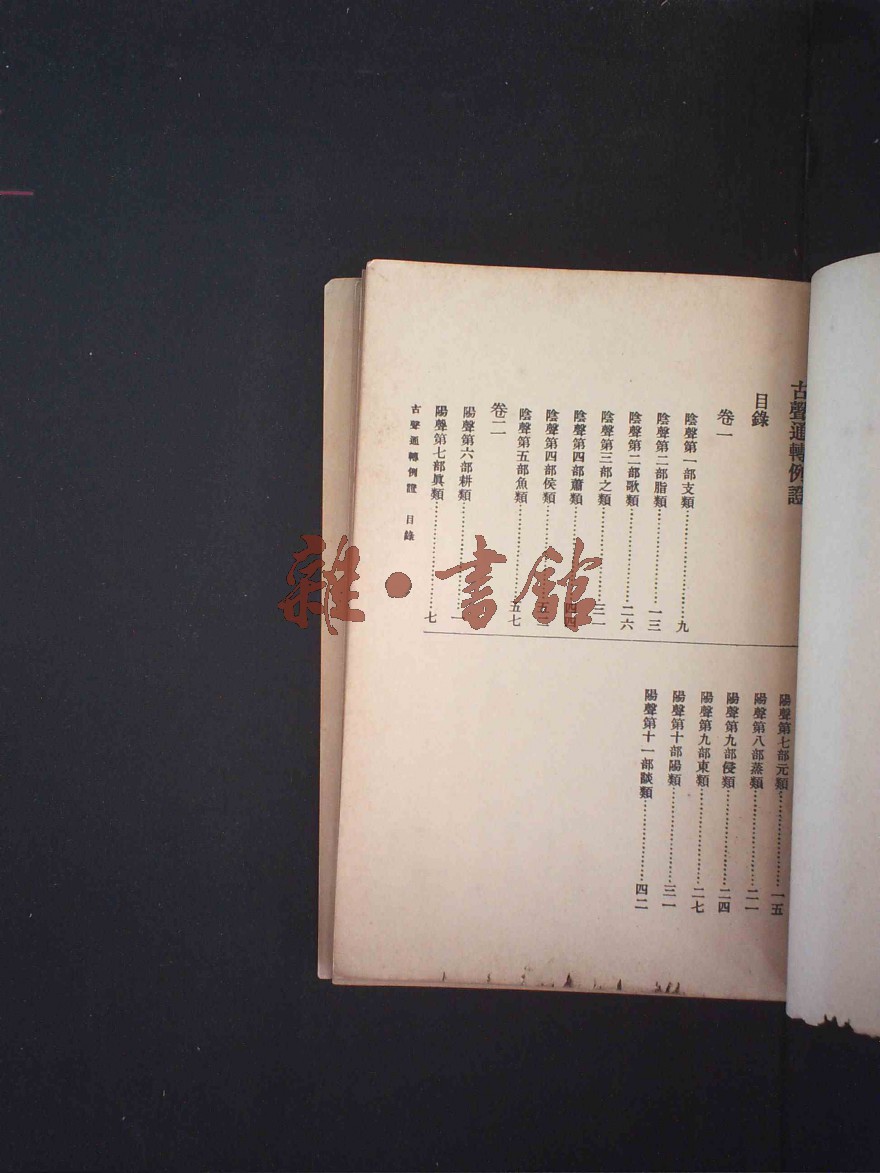 古聲通轉例證
目錄
卷一
陰聲第一部支類……………………九
陰聲第二部脂類……………………一三
陰聲第二部歌類……………………二六
陰聲第三部之類……………………三一
陰聲第四部蕭類……………………四四
陰聲第四部侯類……………………五三
陰聲第五部魚類……………………五七
卷二
陽聲第六部耕類……………………一
陽聲第七部眞類……………………七
陽聲第七部元類……………………一五
陽聲第八部蒸類……………………二一
陽聲第九部侵類……………………二四
陽聲第九部東類……………………二七
陽聲第十部陽類……………………三一
陽聲第十一部談類…………………四二
古聲通轉例證 目錄
雜·書館